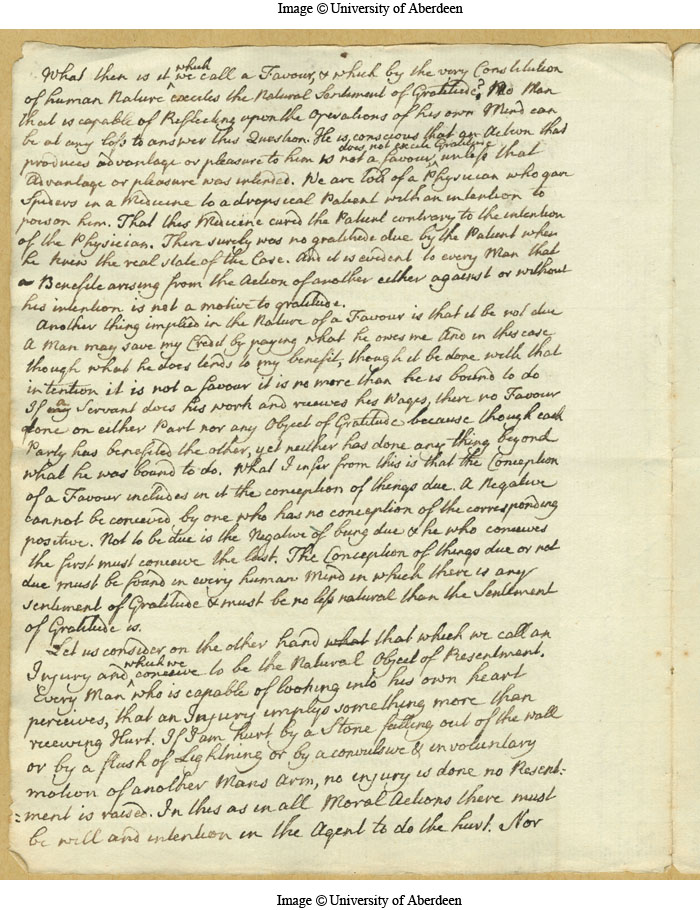 Image © University of Aberdeen
What then is it which we call a Favour, & which by the very Constitution
of human Nature excites the Natural Sentiment of Gratitude? No Man
that is capable of Reflecting upon the Operations of his own Mind can
be at any loss to answer this Question. He is conscious that an Action that
produces advantage or pleasure to him is not a favour, does not excite Gratitude unless that
Advantage or pleasure was intended. We are told of a Physician who gave
Spiders in a Medicine to a dropsical Patient with an intention to
poison him. That this Medicine cured the Patient contrary to the intention
of the Physician. There surely was no gratitude due by the Patient when
he knew the real state of the Case. And it is evident to every Man that
a Benefite arising from the Action of another either against or without
his intention is not a motive to gratitude.
Another thing implied in the Nature of a Favour is that it be not due
A Man may save my Credit by paying what he owes me And in this case
though what he does tends to my benefit, though it be done with that
intention it is not a favour it is no more than he is bound to do
If a Servant does his work and receives his Wages, there no Favour
done on either Part nor any Object of Gratitude because though each
Party has benefited the other, yet neither has done any thing beyond
what he was bound to do. What I infer from this is that the Conception
of a Favour includes in it the conception of things due. A Negative
cannot be conceived by one who has no conception of the corresponding
positive. Not to be due is the Negative of being due & he who conceives
the first must conceive the last. The Conception of things due or not
due must be found in every human Mind in which there is any
sentiment of Gratitude & must be no less natural than the Sentiment
of Gratitude is.
Let us consider on the other hand what that which we call an
Injury and which we conceive to be the Natural Object of Resentment.
Every Man who is capable of looking into his own heart
perceives, that an Injury implys something more than
receiving Hurt. If I am hurt by a Stone falling out of the wall
or by a flush of Lightning or by a convulsive & involuntary
motion of another Mans Arm, no injury is done no Resent:
=ment is raised. In this as in all Moral Actions there must
be will and intention in the Agent to do the hurt. Nor
Image © University of Aberdeen